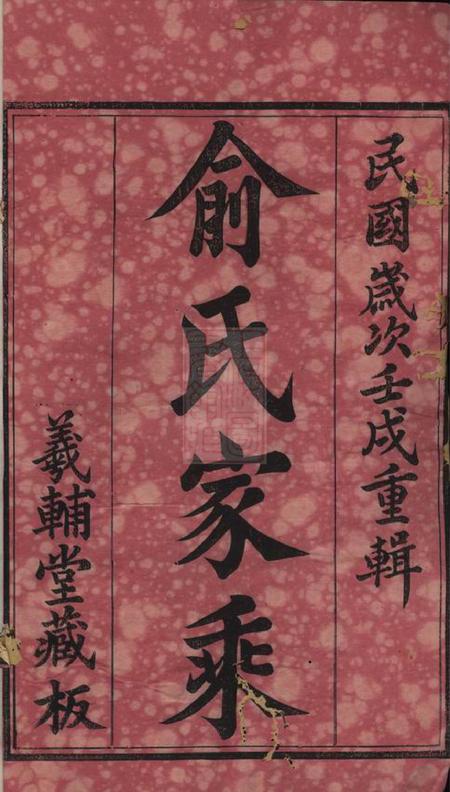 民國歲次壬戌重輯
俞氏家乘
羲輔堂藏板